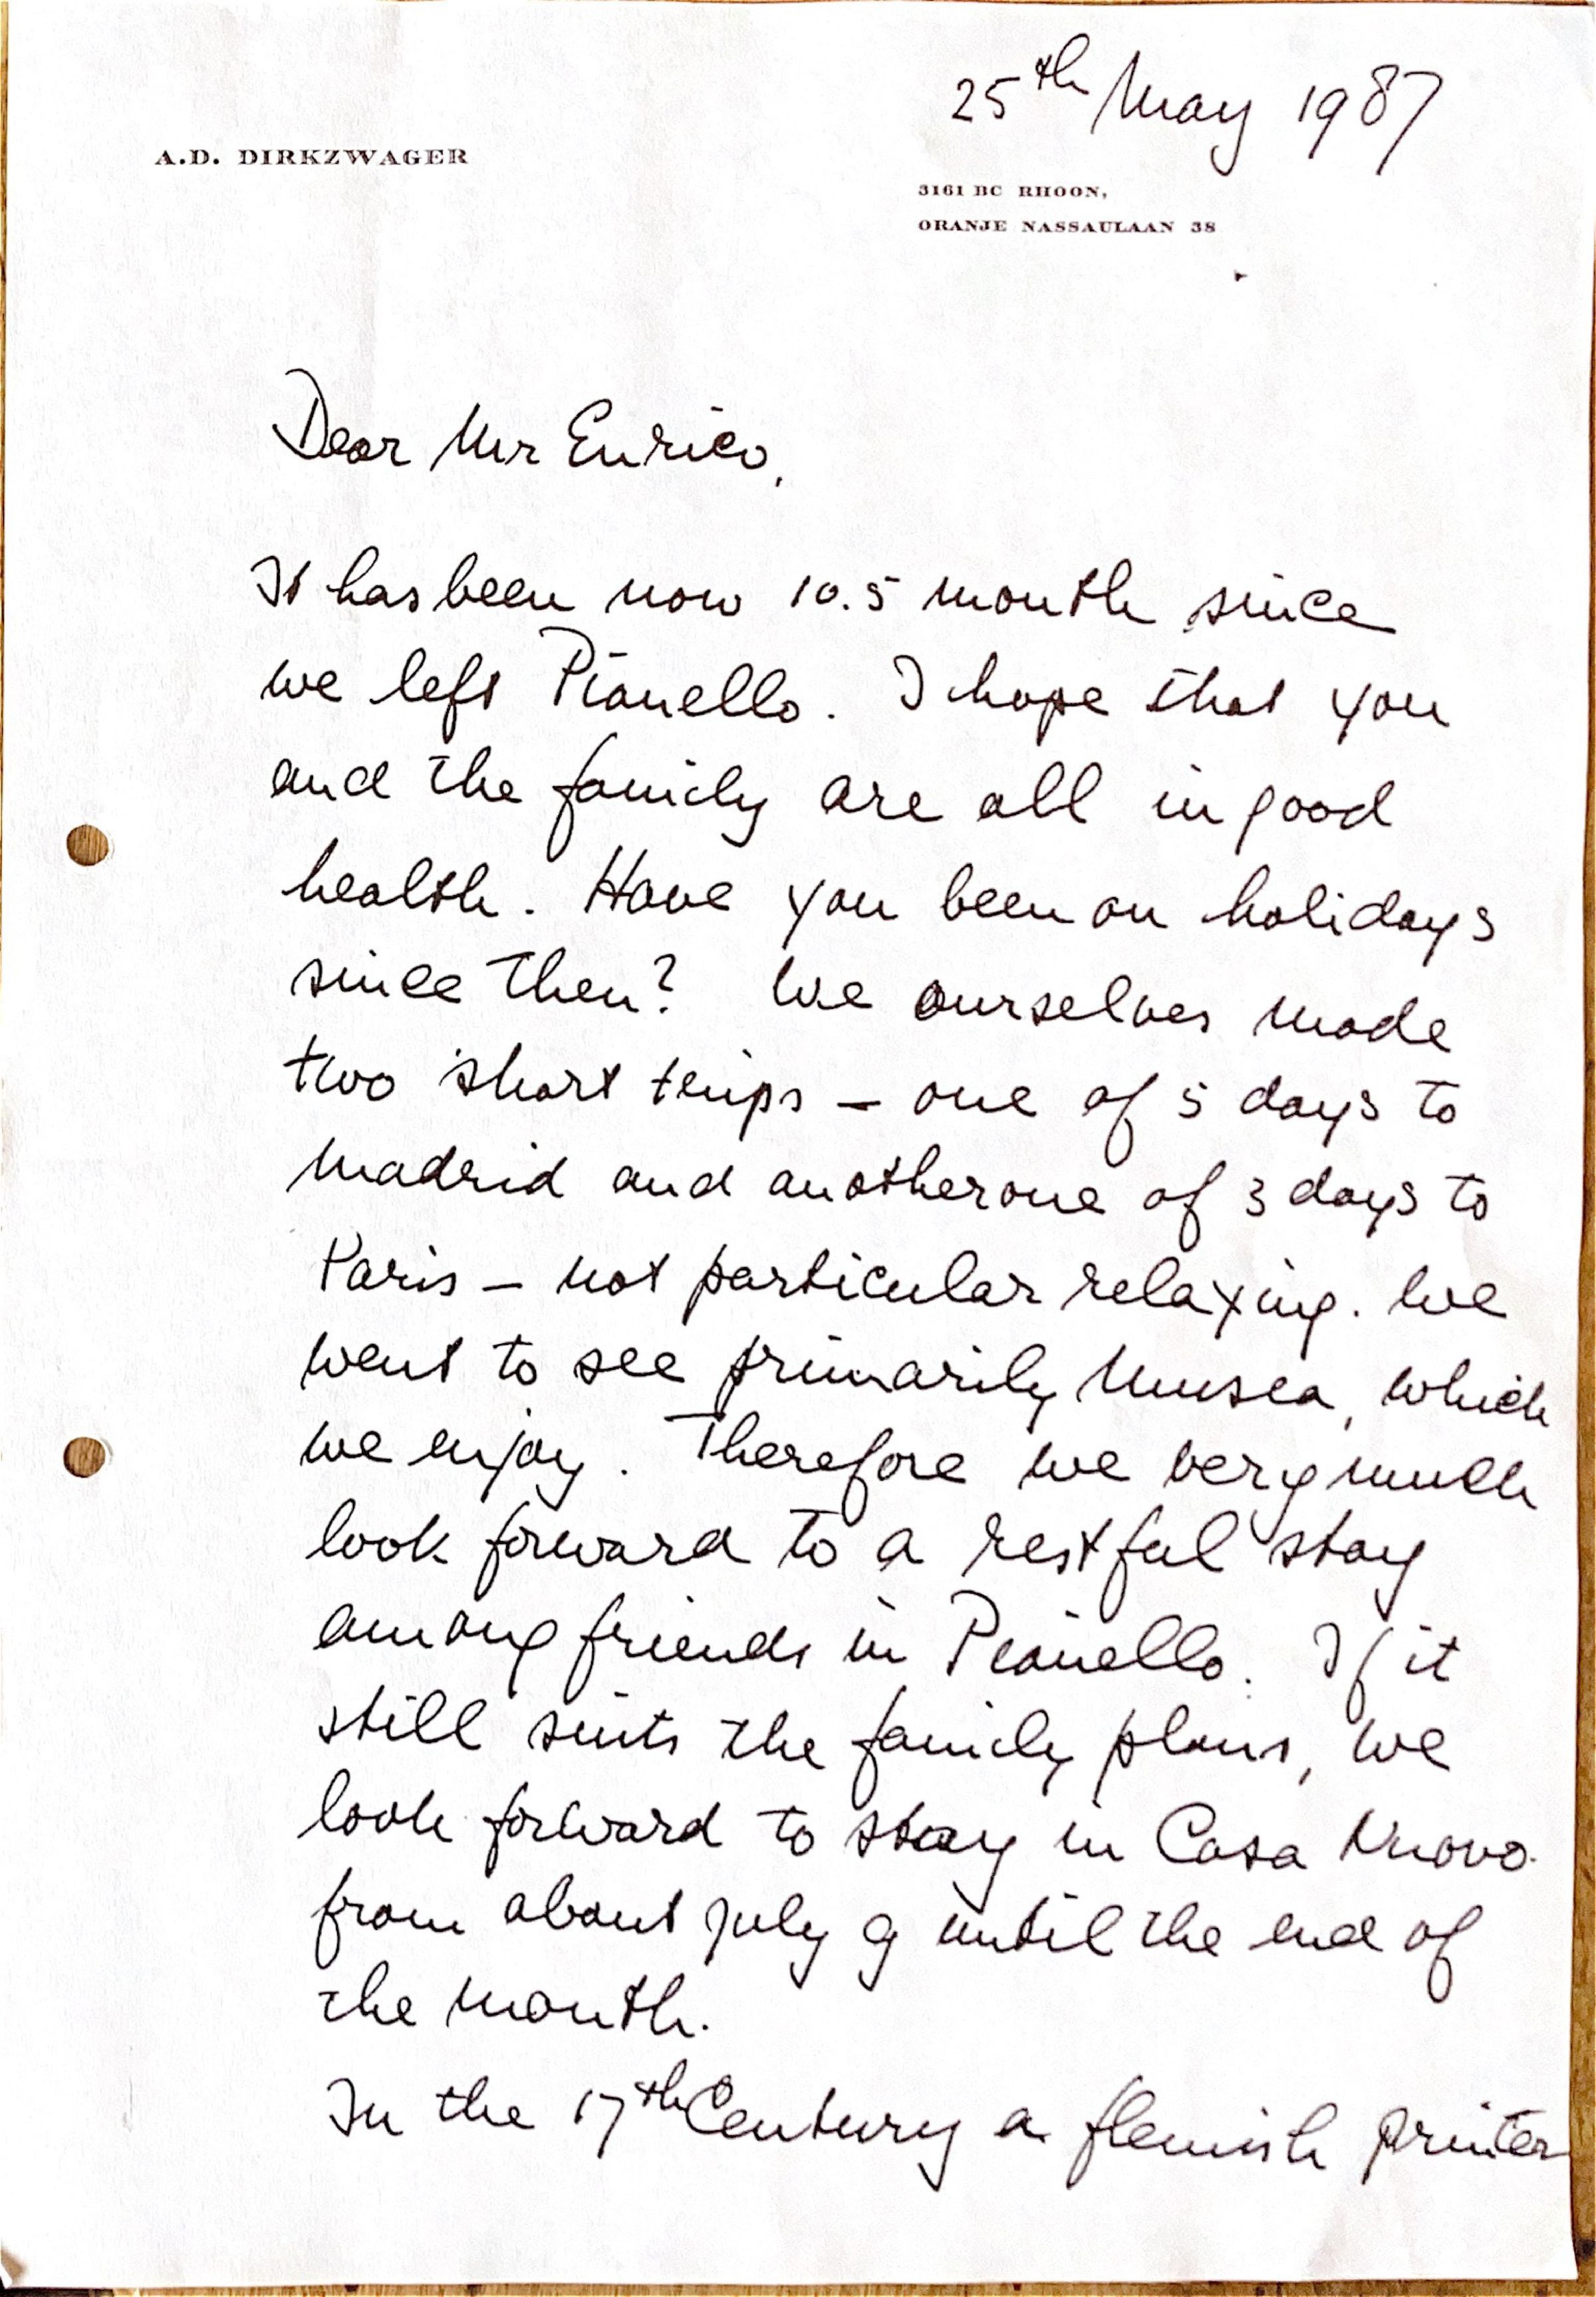 25th May 1987
A.D. DIRKZWAGER
3161 BC RHOON,
ORANJE NASSAULAAN 38
Dear Mr Enrico,
It has been now 10.5 month since
we left Pianello. I hope that you
and the family are all in good
health. Have you been on holidays
since then? We ourselves made
two short trips – one of 5 days to
Madrid and another one of 3 days to
Paris – not particular relaxing. We
went to see primarily Musea, which
we enjoy. Therefore we very much
look forward to a restful stay
among friends in Pianello. If it
still suits the family plans, we
look forward to stay in Casa Nuova
from about July 9 until the end of
the month.
In the 17th Century a flemish printer